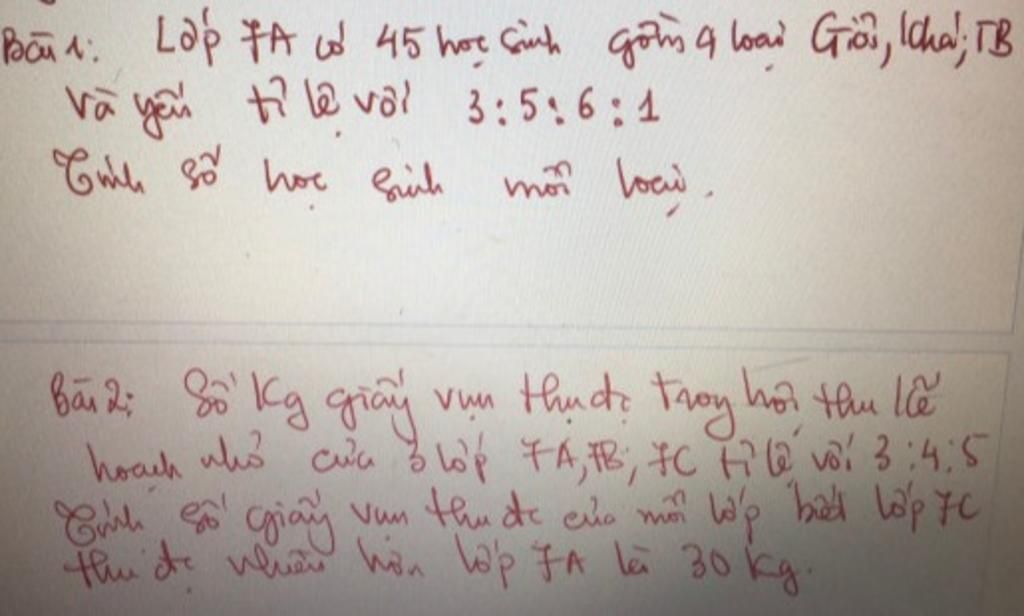 Bài 1: Lớp 7A có 45 học sinh gồm 4 loại Giỏi, Khá; TB
và yếu tỉ lệ với 3:5:6:1
Tính số học sinh mỗi loại.
Bài 2: Số Kg giấy vụn thu đc trong hội thu Kế
hoạch nhỏ của 3 lớp 7A, 7B, 7C tỉ lệ với 3:4:5
Tính số giấy vụn thu đc của mỗi lớp biết lớp 7C
thu đc nhiều hơn lớp 7A là 30 kg.